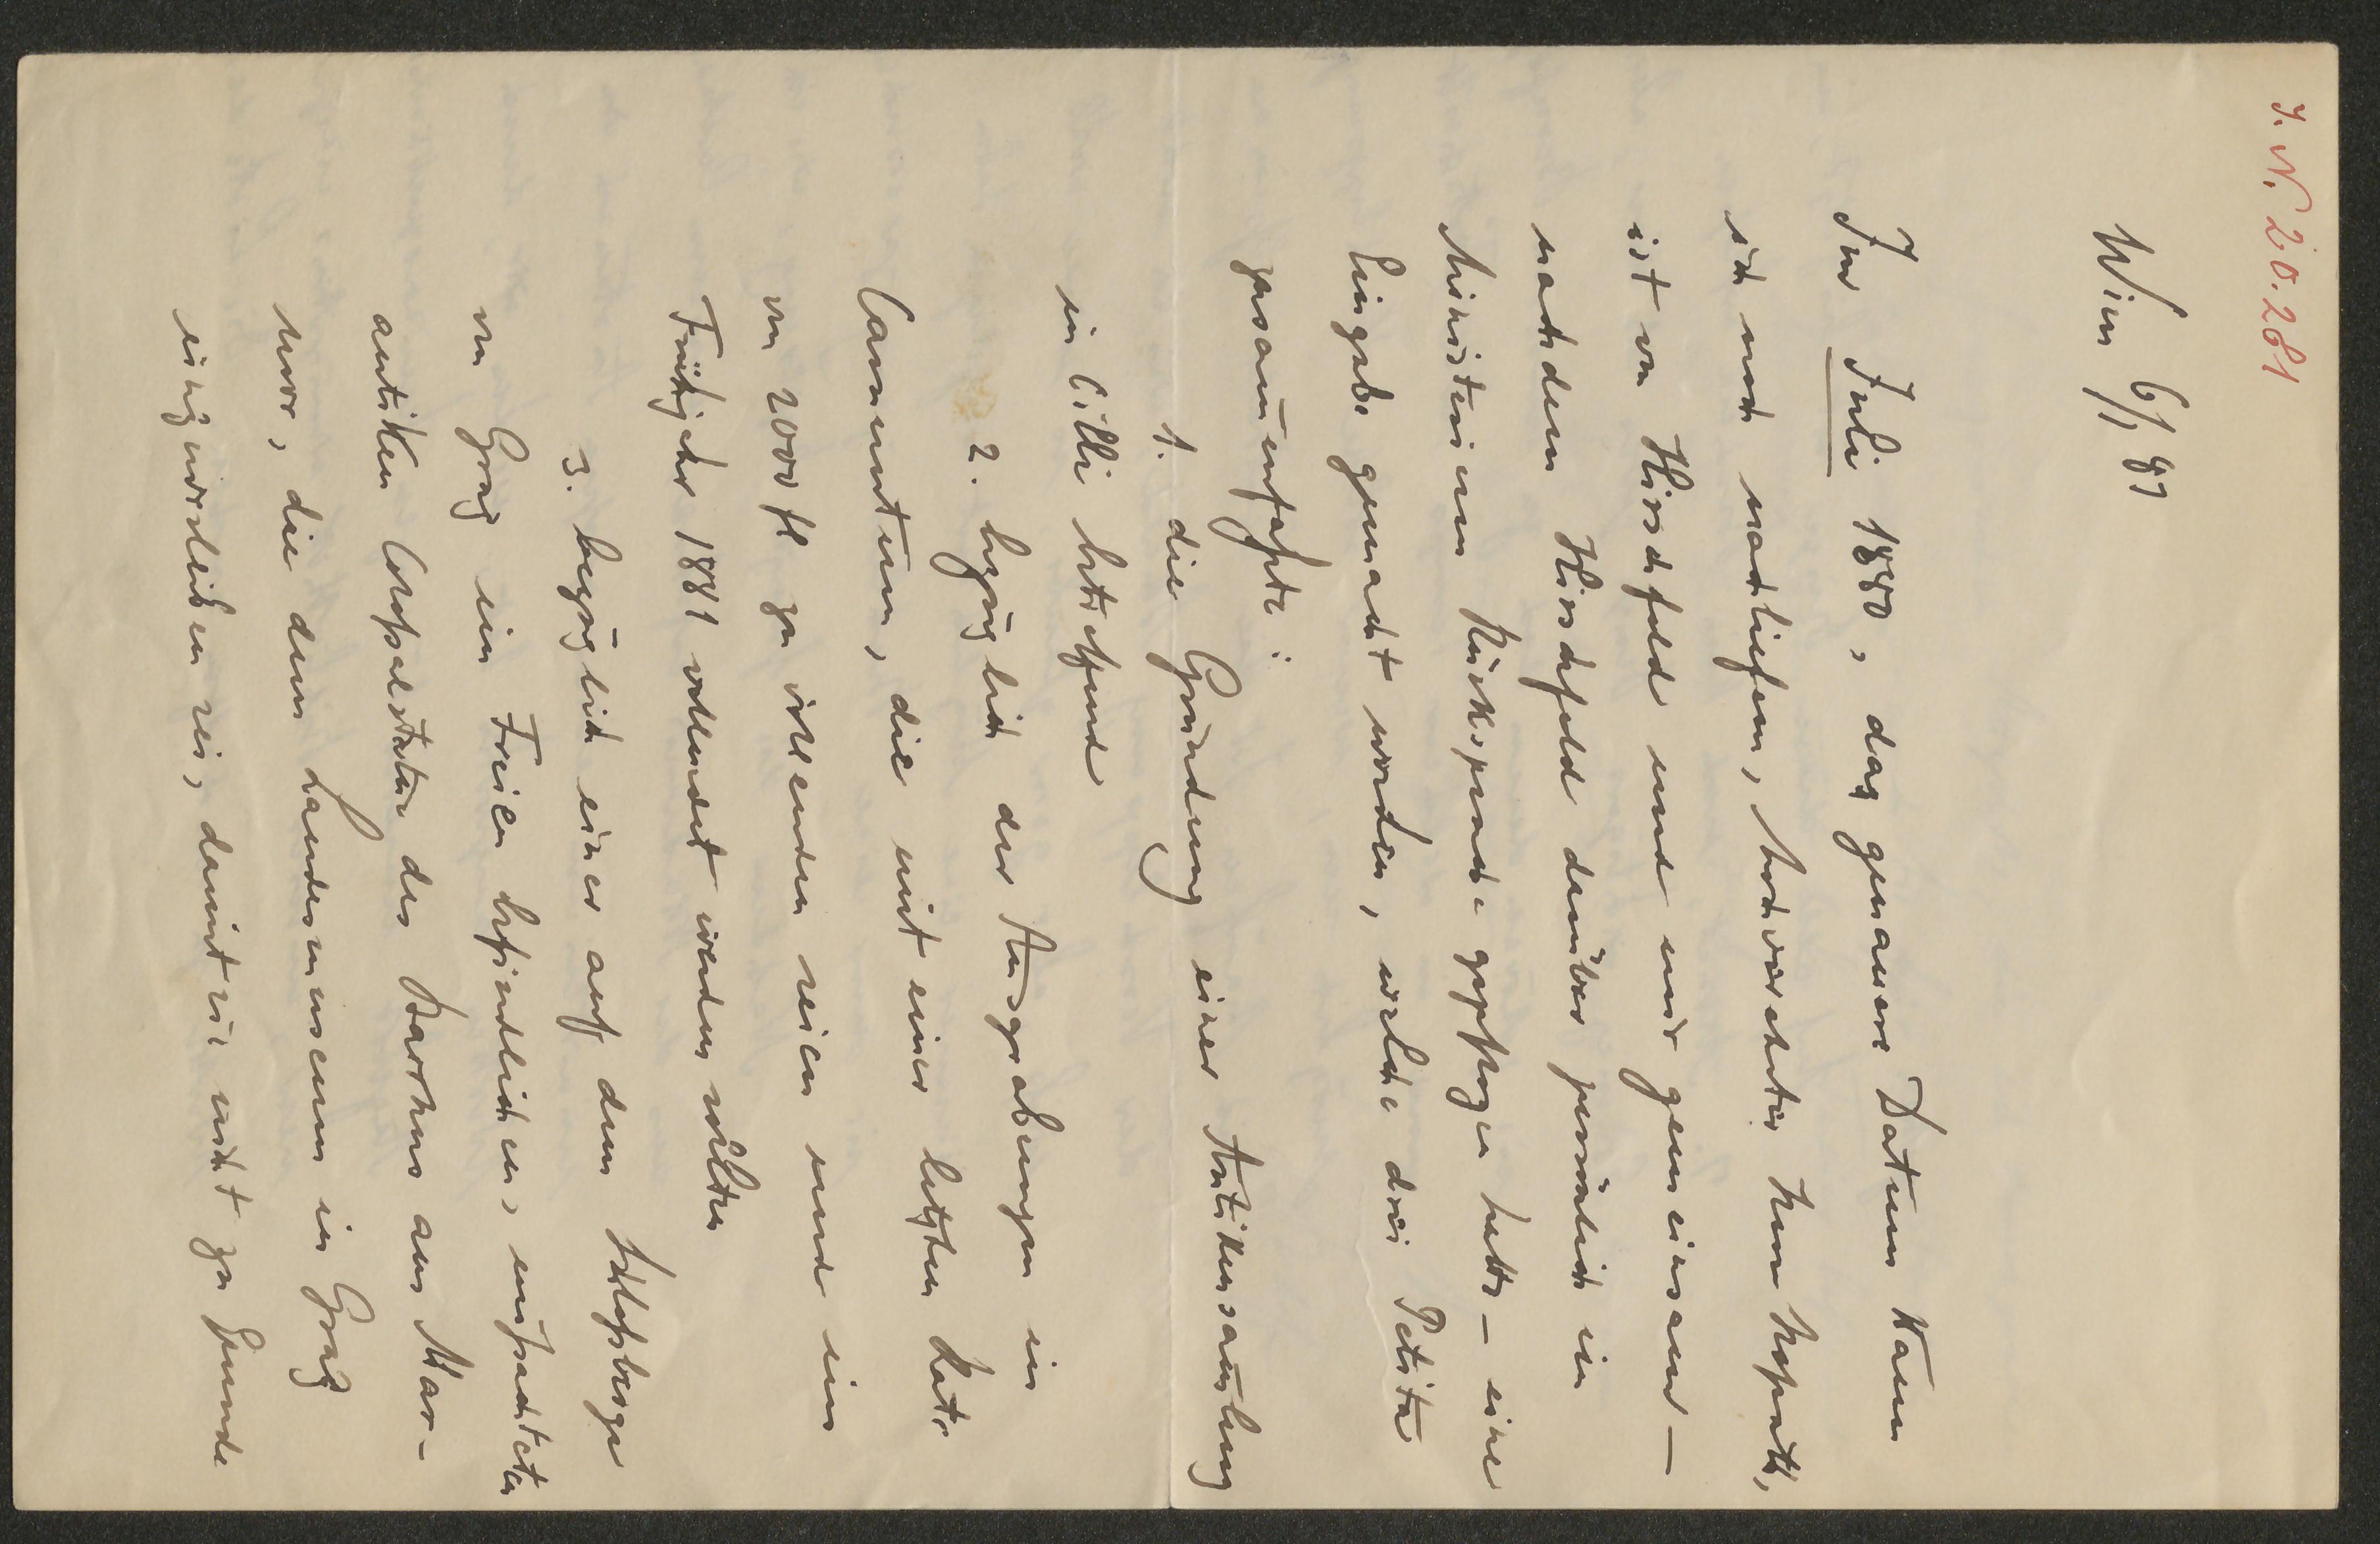 I. N. 20.281
Wien 6/1 87
Im Juli 1880, das genauere Datum kann
ich noch nachliefern, hochverehrter Herr Hofrath,
ist von Hirschfeld und mir gemeinsam –
nachdem Hirschfeld darüber persönlich im
Ministerium Rücksprache gepflogen hatte – eine
Eingabe gemacht worden, welche drei Petita
zusam̅enfaßte:
1. die Gründung einer Antikensam̅lung
in Cilli betreffend
2. bezüglich der Ausgrabungen in
Carnuntum, die mit einer letzten Rate
von 2000 fl zu vollenden seien und im
Frühjahr 1881 vollendet werden sollten
3. bezüglich einer auf dem Schloßberge
von Graz im Freien befindlichen, mißachteten
antiken Statue des Bacchus aus Mar-
mor, die dem Landesmuseum in Graz
einzuverleiben sei, damit sie nicht zu Grunde